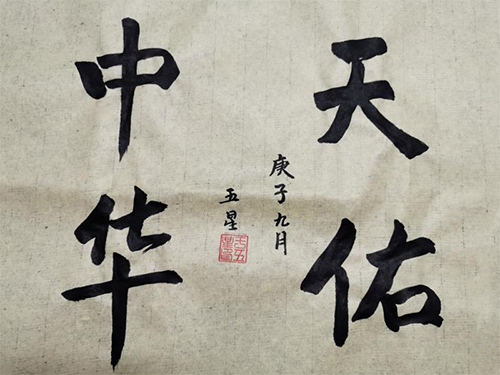 天佑
中华
庚子九月
五星